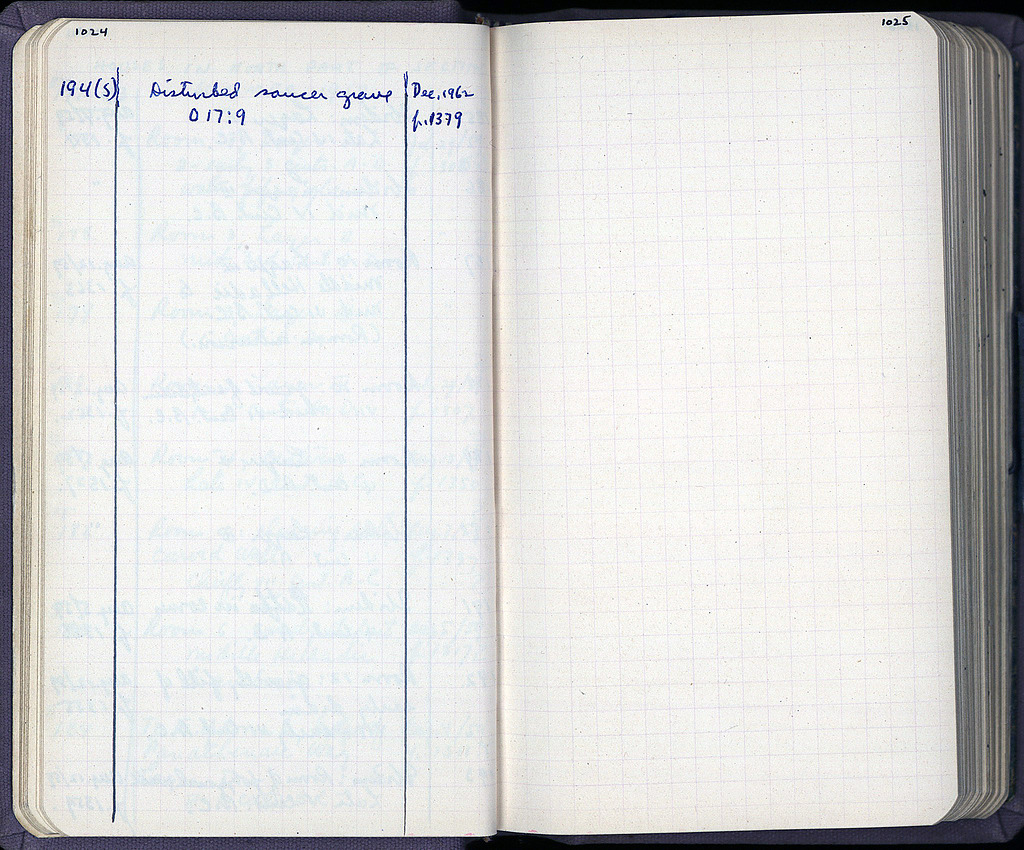 1024
194(S) Disturbed saucer grave Dec. 1962
O 17:9 p. 1379
1025